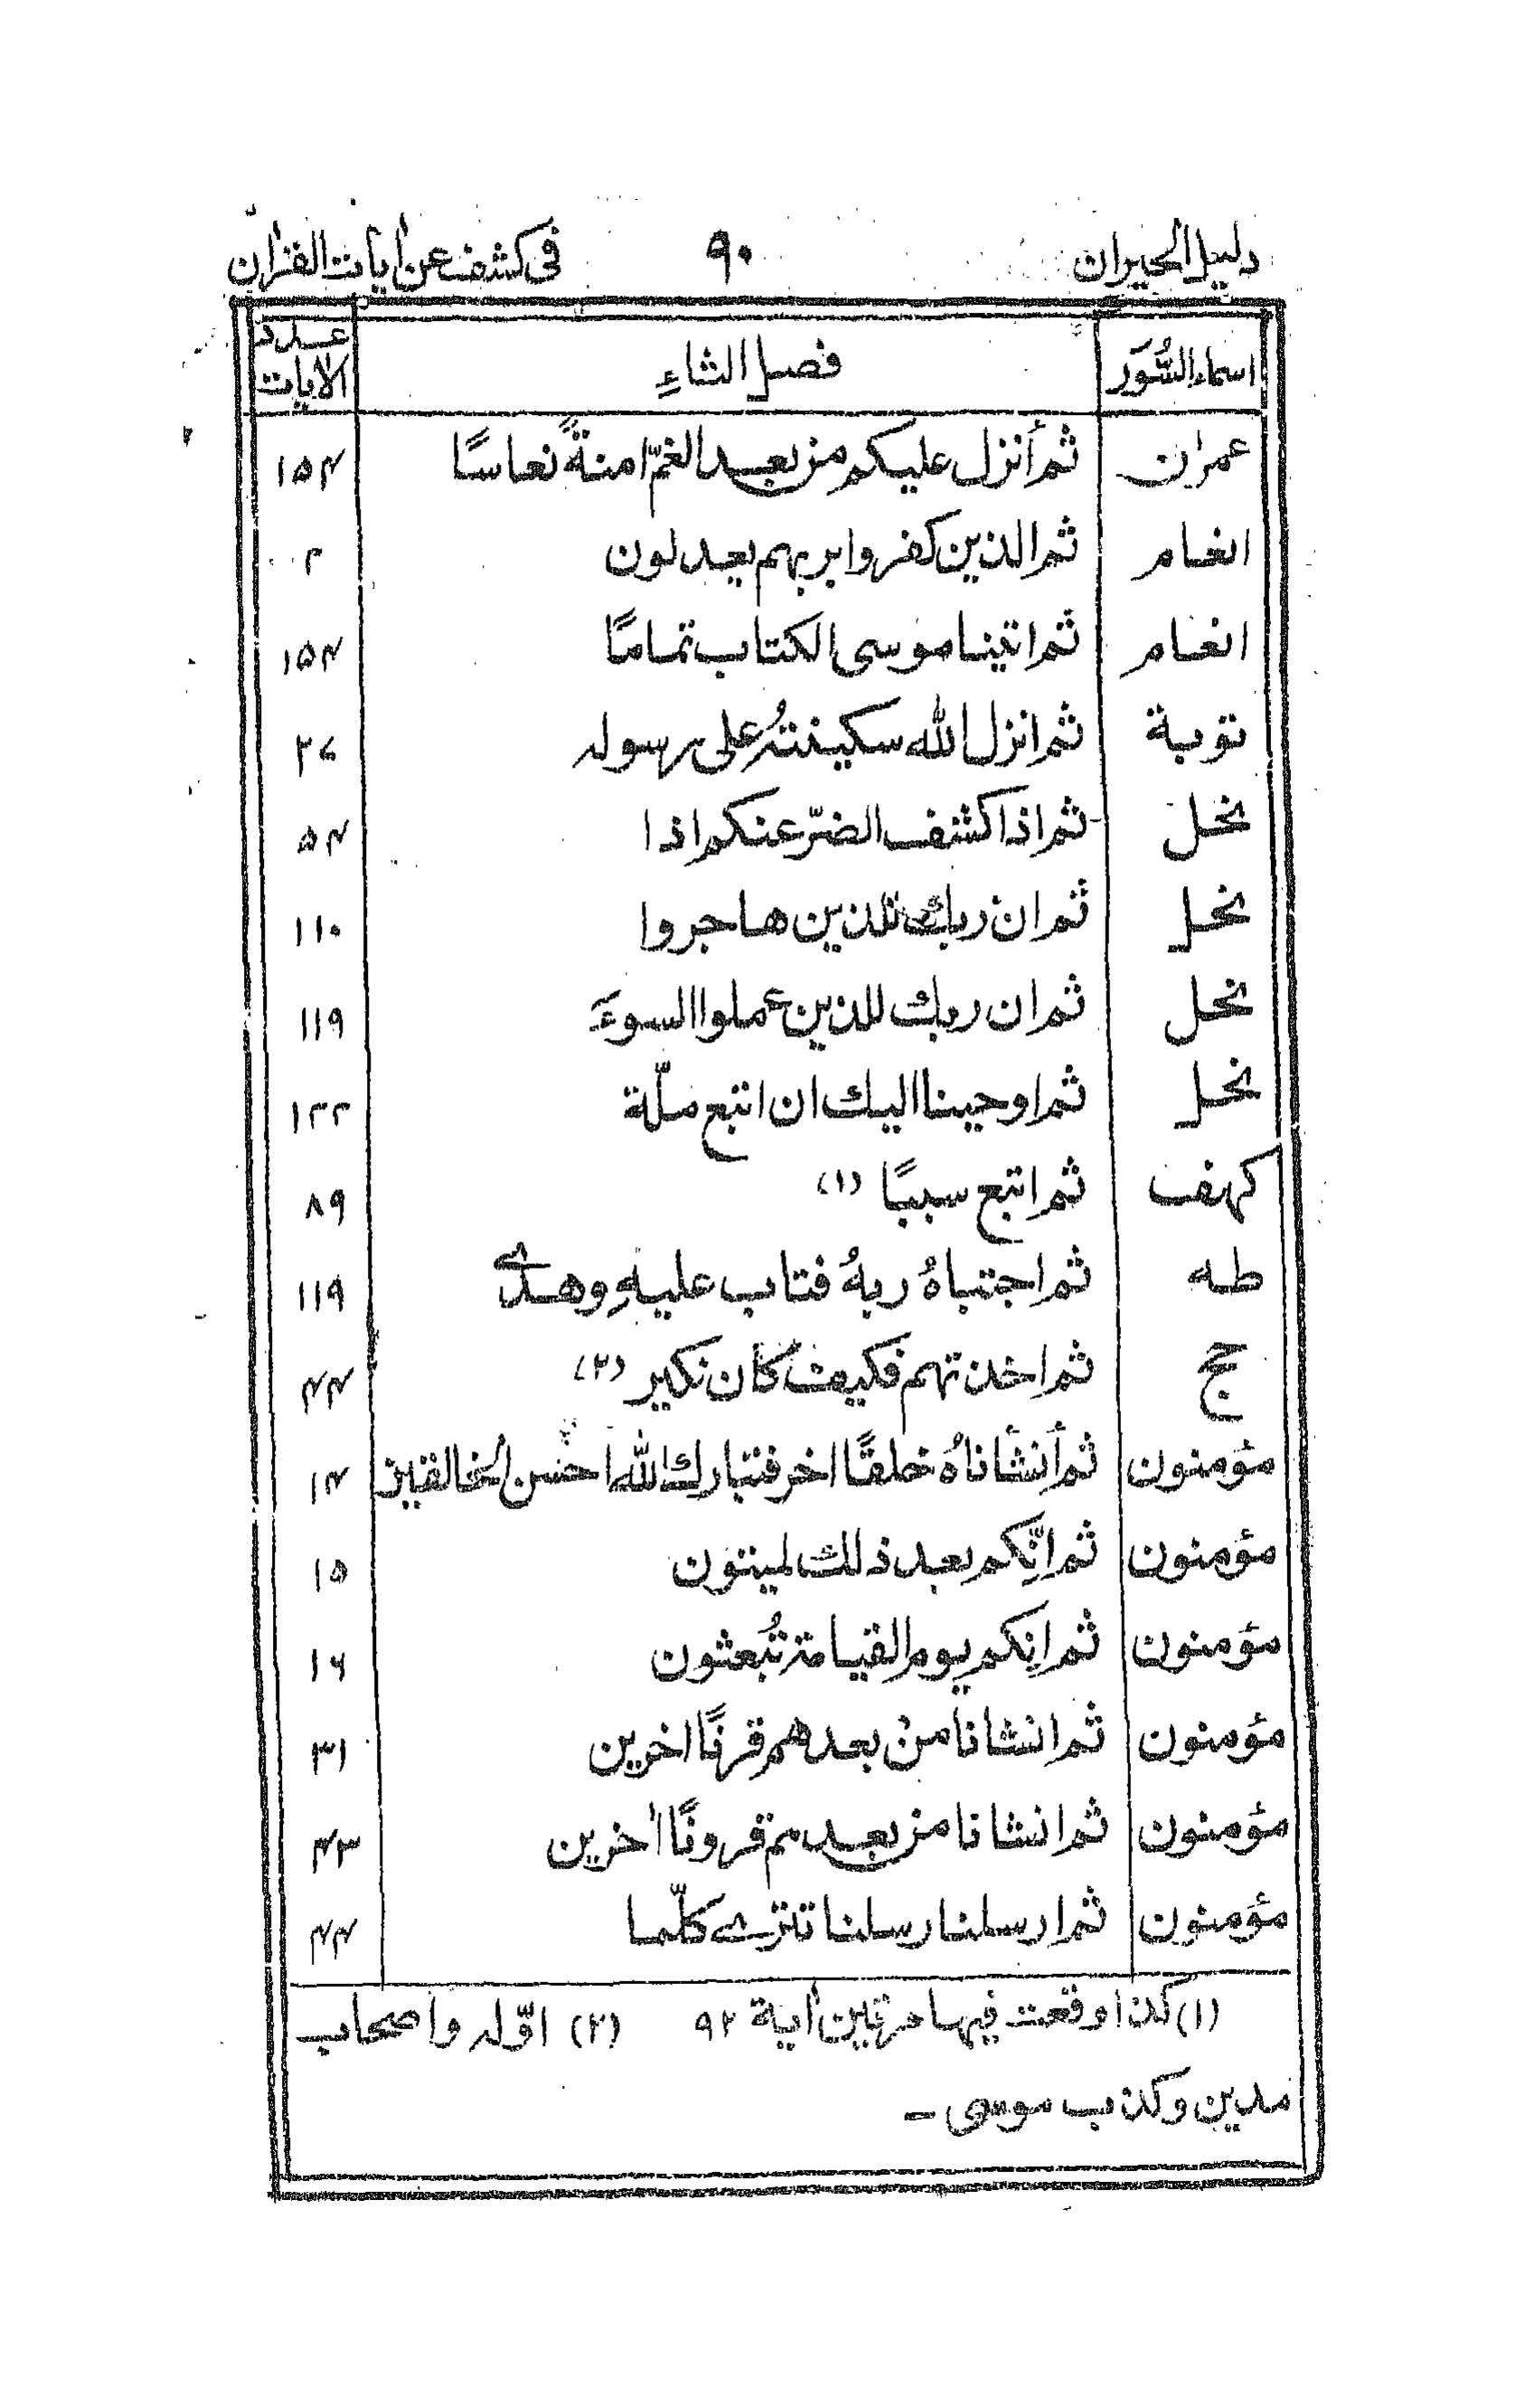 دليل الحيران ٩٠ فى كشف عن اٰيات القراٰن
اسماء السُّوَر فصل الثاءِ عدد الايات
عمران ثم أنزل عليكم من بعد الغمّ امنةً نعاسًا ١۵۴
انعام ثم الذين كفروا بربهم يعدلون ٢
انعام ثم اتينا موسى الكتاب تمامًا ١۵۴
توبة ثم انزل الله سكينتهُ على رسوله ٢٧
نحل ثم اذا كشف الضرّ عنكم اذا ۵۴
نحل ثم ان ربك للذين هاجروا ١١٠
نحل ثم ان ربك للذين عملوا السوءَ ١١٩
نحل ثم اوحينا اليك ان اتبع ملّة ١٢٢
كهف ثم اتبع سببًا (١) ٨٩
طه ثم اجتباهُ ربهُ فتاب عليهِ وهدٰى ١١٩
حج ثم اخذتهم فكيف كان نكير (٢) ۴۴
مؤمنون ثم أنشأناهُ خلقًا اخر فتبارك الله احسن الخالقين ١۴
مؤمنون ثم اِنّكم بعد ذلك لميتون ١۵
مؤمنون ثم اِنكم يوم القيامة تُبعثون ١۶
مؤمنون ثم انشانا منْ بعدهم قرنًا اخرين ٣١
مؤمنون ثم انشانا من بعدهم قرونًا اٰخرين ۴٣
مؤمنون ثم ارسلنا رسلنا تترى كلّما ۴۴
(١) كذا وقعت فيها مرتين اٰية ٩٢ (٢) اوّله واصحاب
مدين وكذب موسى -